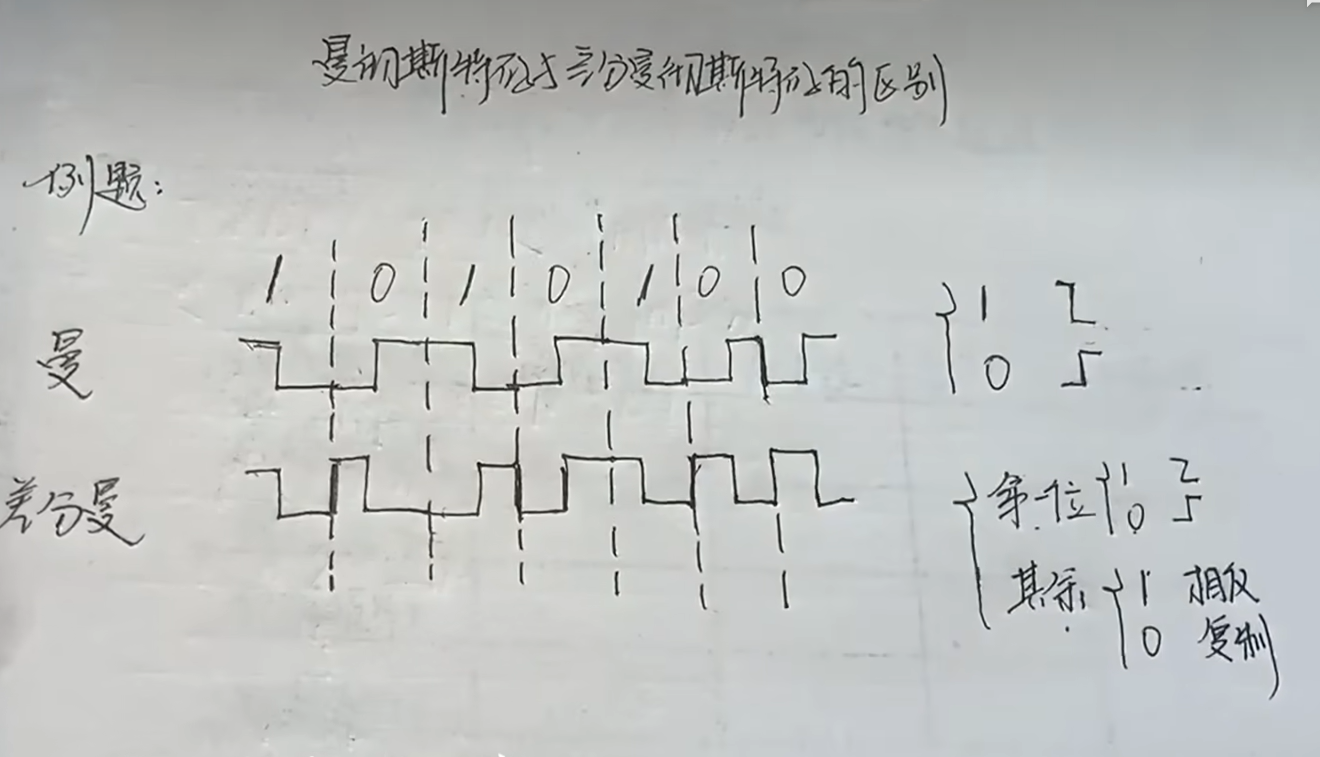 曼彻斯特码与差分曼彻斯特码的区别
例题:
1 0 1 0 1 0 0
曼
1
0
差分曼
第一位 1
0
其余 1 相反
0 复制